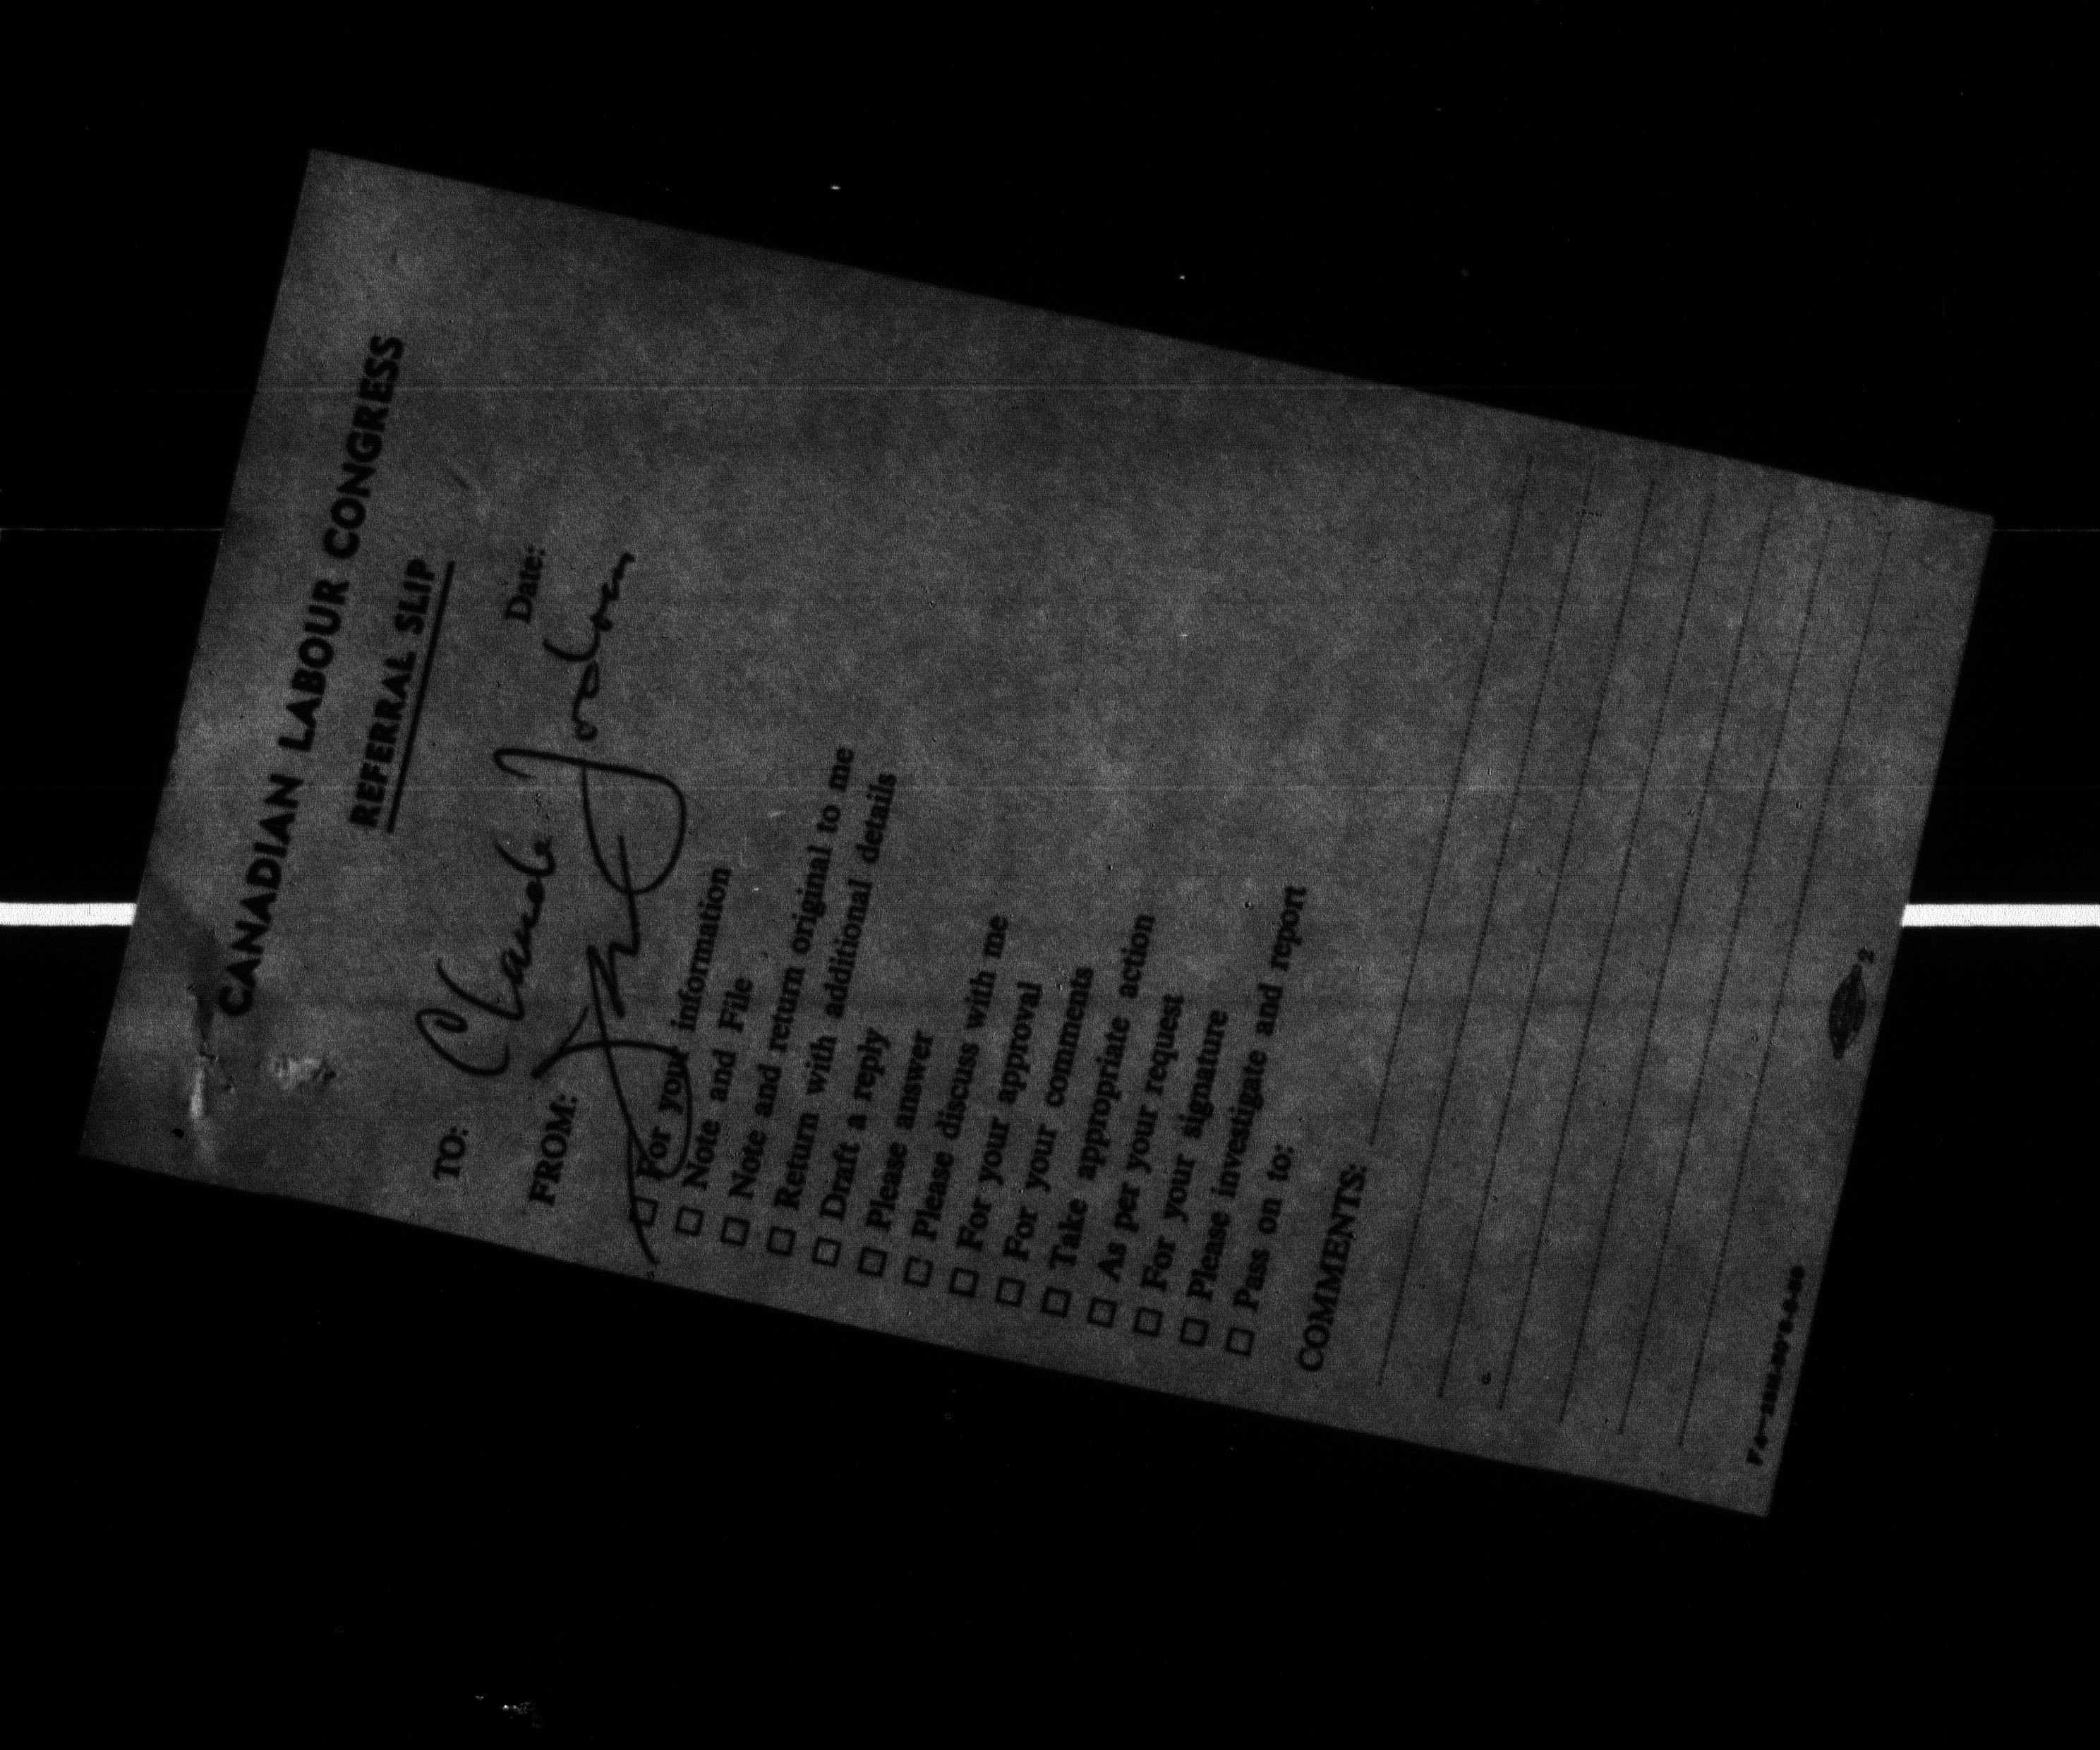 CANADIAN LABOUR CONGRESS
REFERRAL SLIP
Date:
TO: Claude Jodoin
FROM:
☐ For your information
☐ Note and File
☐ Note and return original to me
☐ Return with additional details
☐ Draft a reply
☐ Please answer
☐ Please discuss with me
☐ For your approval
☐ For your comments
☐ Take appropriate action
☐ As per your request
☐ For your signature
☐ Please investigate and report
☐ Pass on to:
COMMENTS:
2